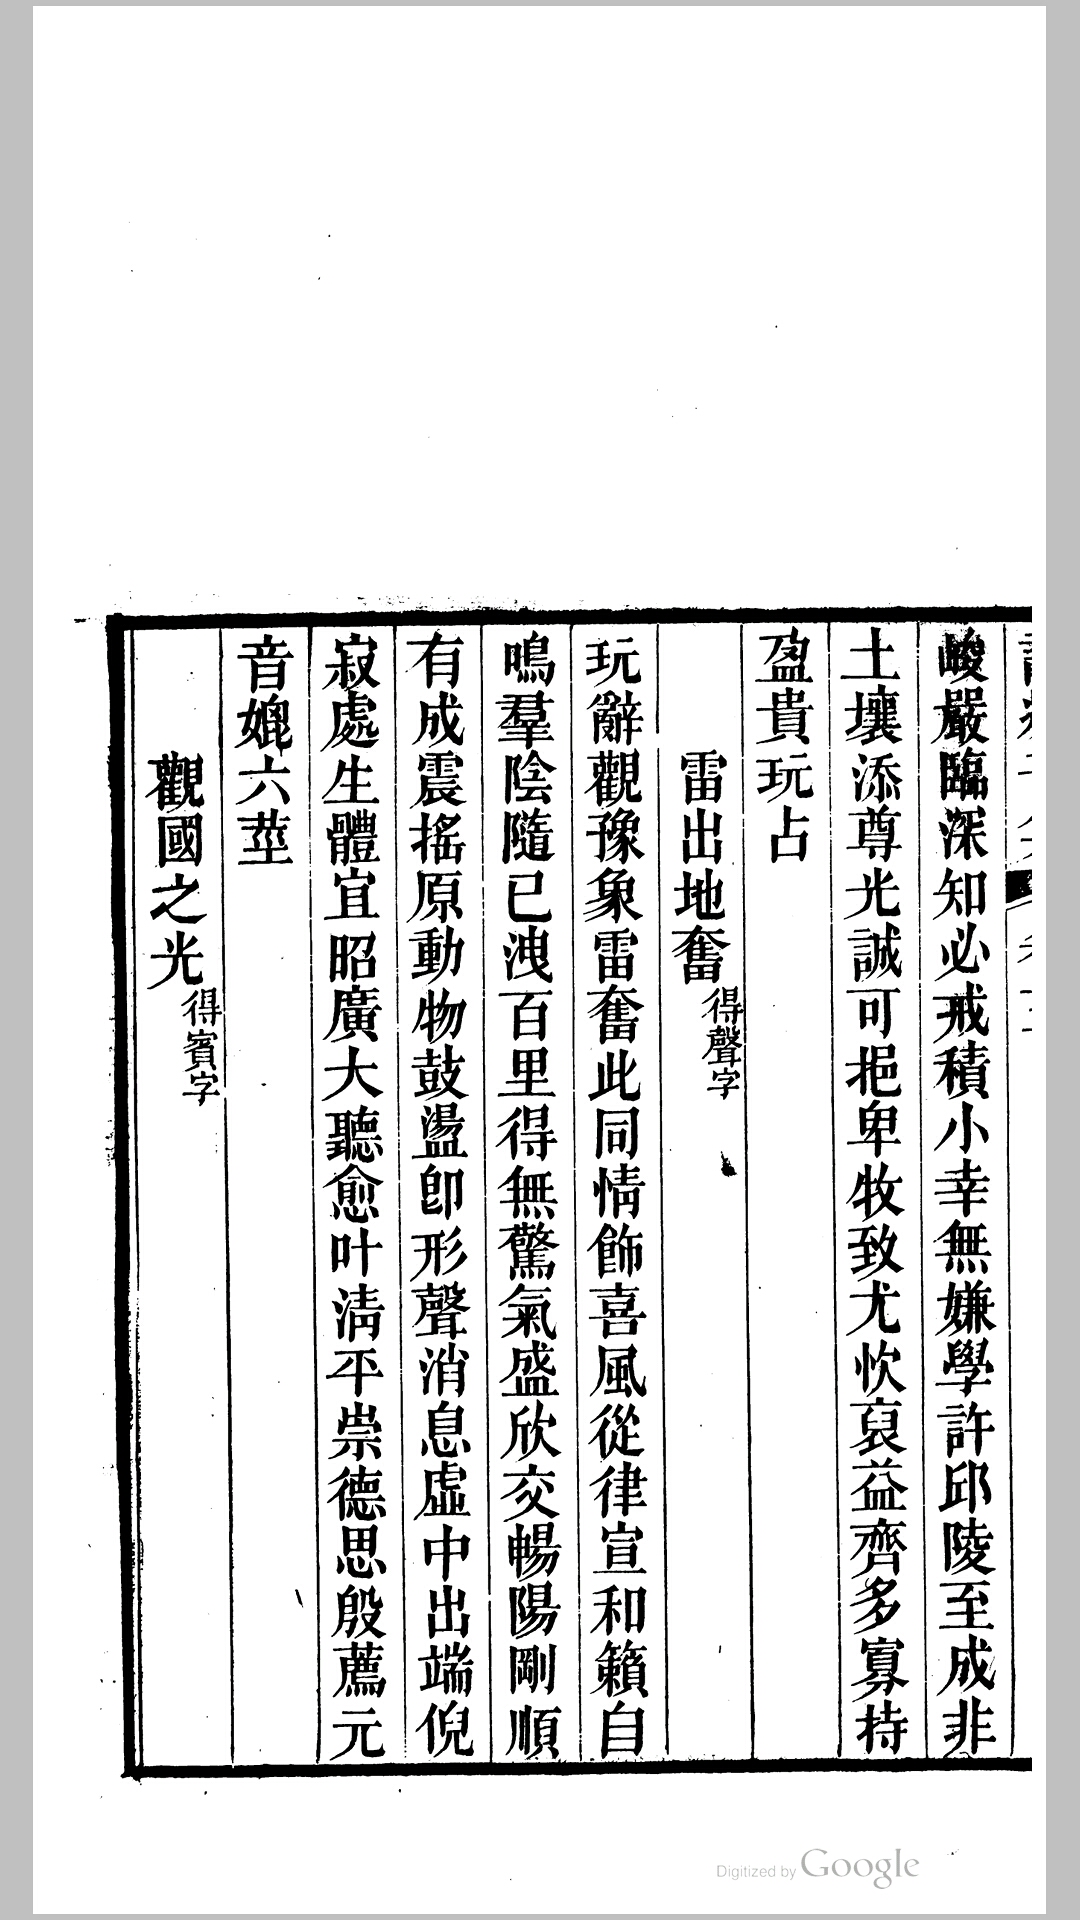 峻嚴臨深知必戒積小幸無嫌學許邱陵至成非
土壤添尊光誠可挹卑牧致尤忺裒益齊多寡持
盈貴玩占
雷出地奮得聲字
玩辭觀豫象雷奮此同情飾喜風從律宣和籟自
鳴羣陰隨已洩百里得無驚氣盛欣交暢陽剛順
有成震搖原動物鼓盪卽形聲消息虛中出端倪
寂處生體宜昭廣大聽愈叶淸平崇德思殷薦元
音媲六莖
觀國之光得賓字
Digitized by Google